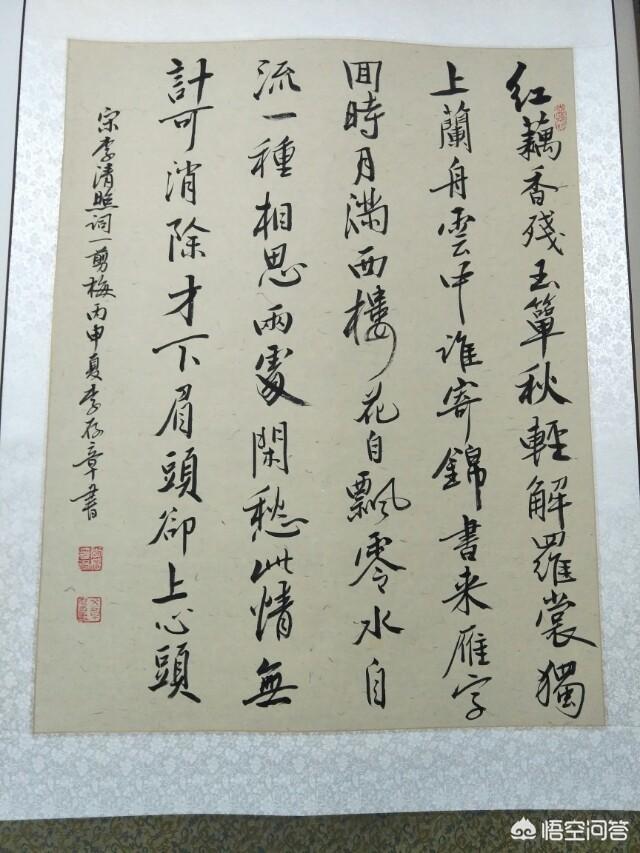 红藕香残玉簟秋輕解羅裳獨
上蘭舟雲中誰寄錦書来雁字
回時月满西樓花自飄零水自
流一種相思兩處閑愁此情無
計可消除才下眉頭卻上心頭
宋李清照词一剪梅丙申夏李存章書
悟空问答